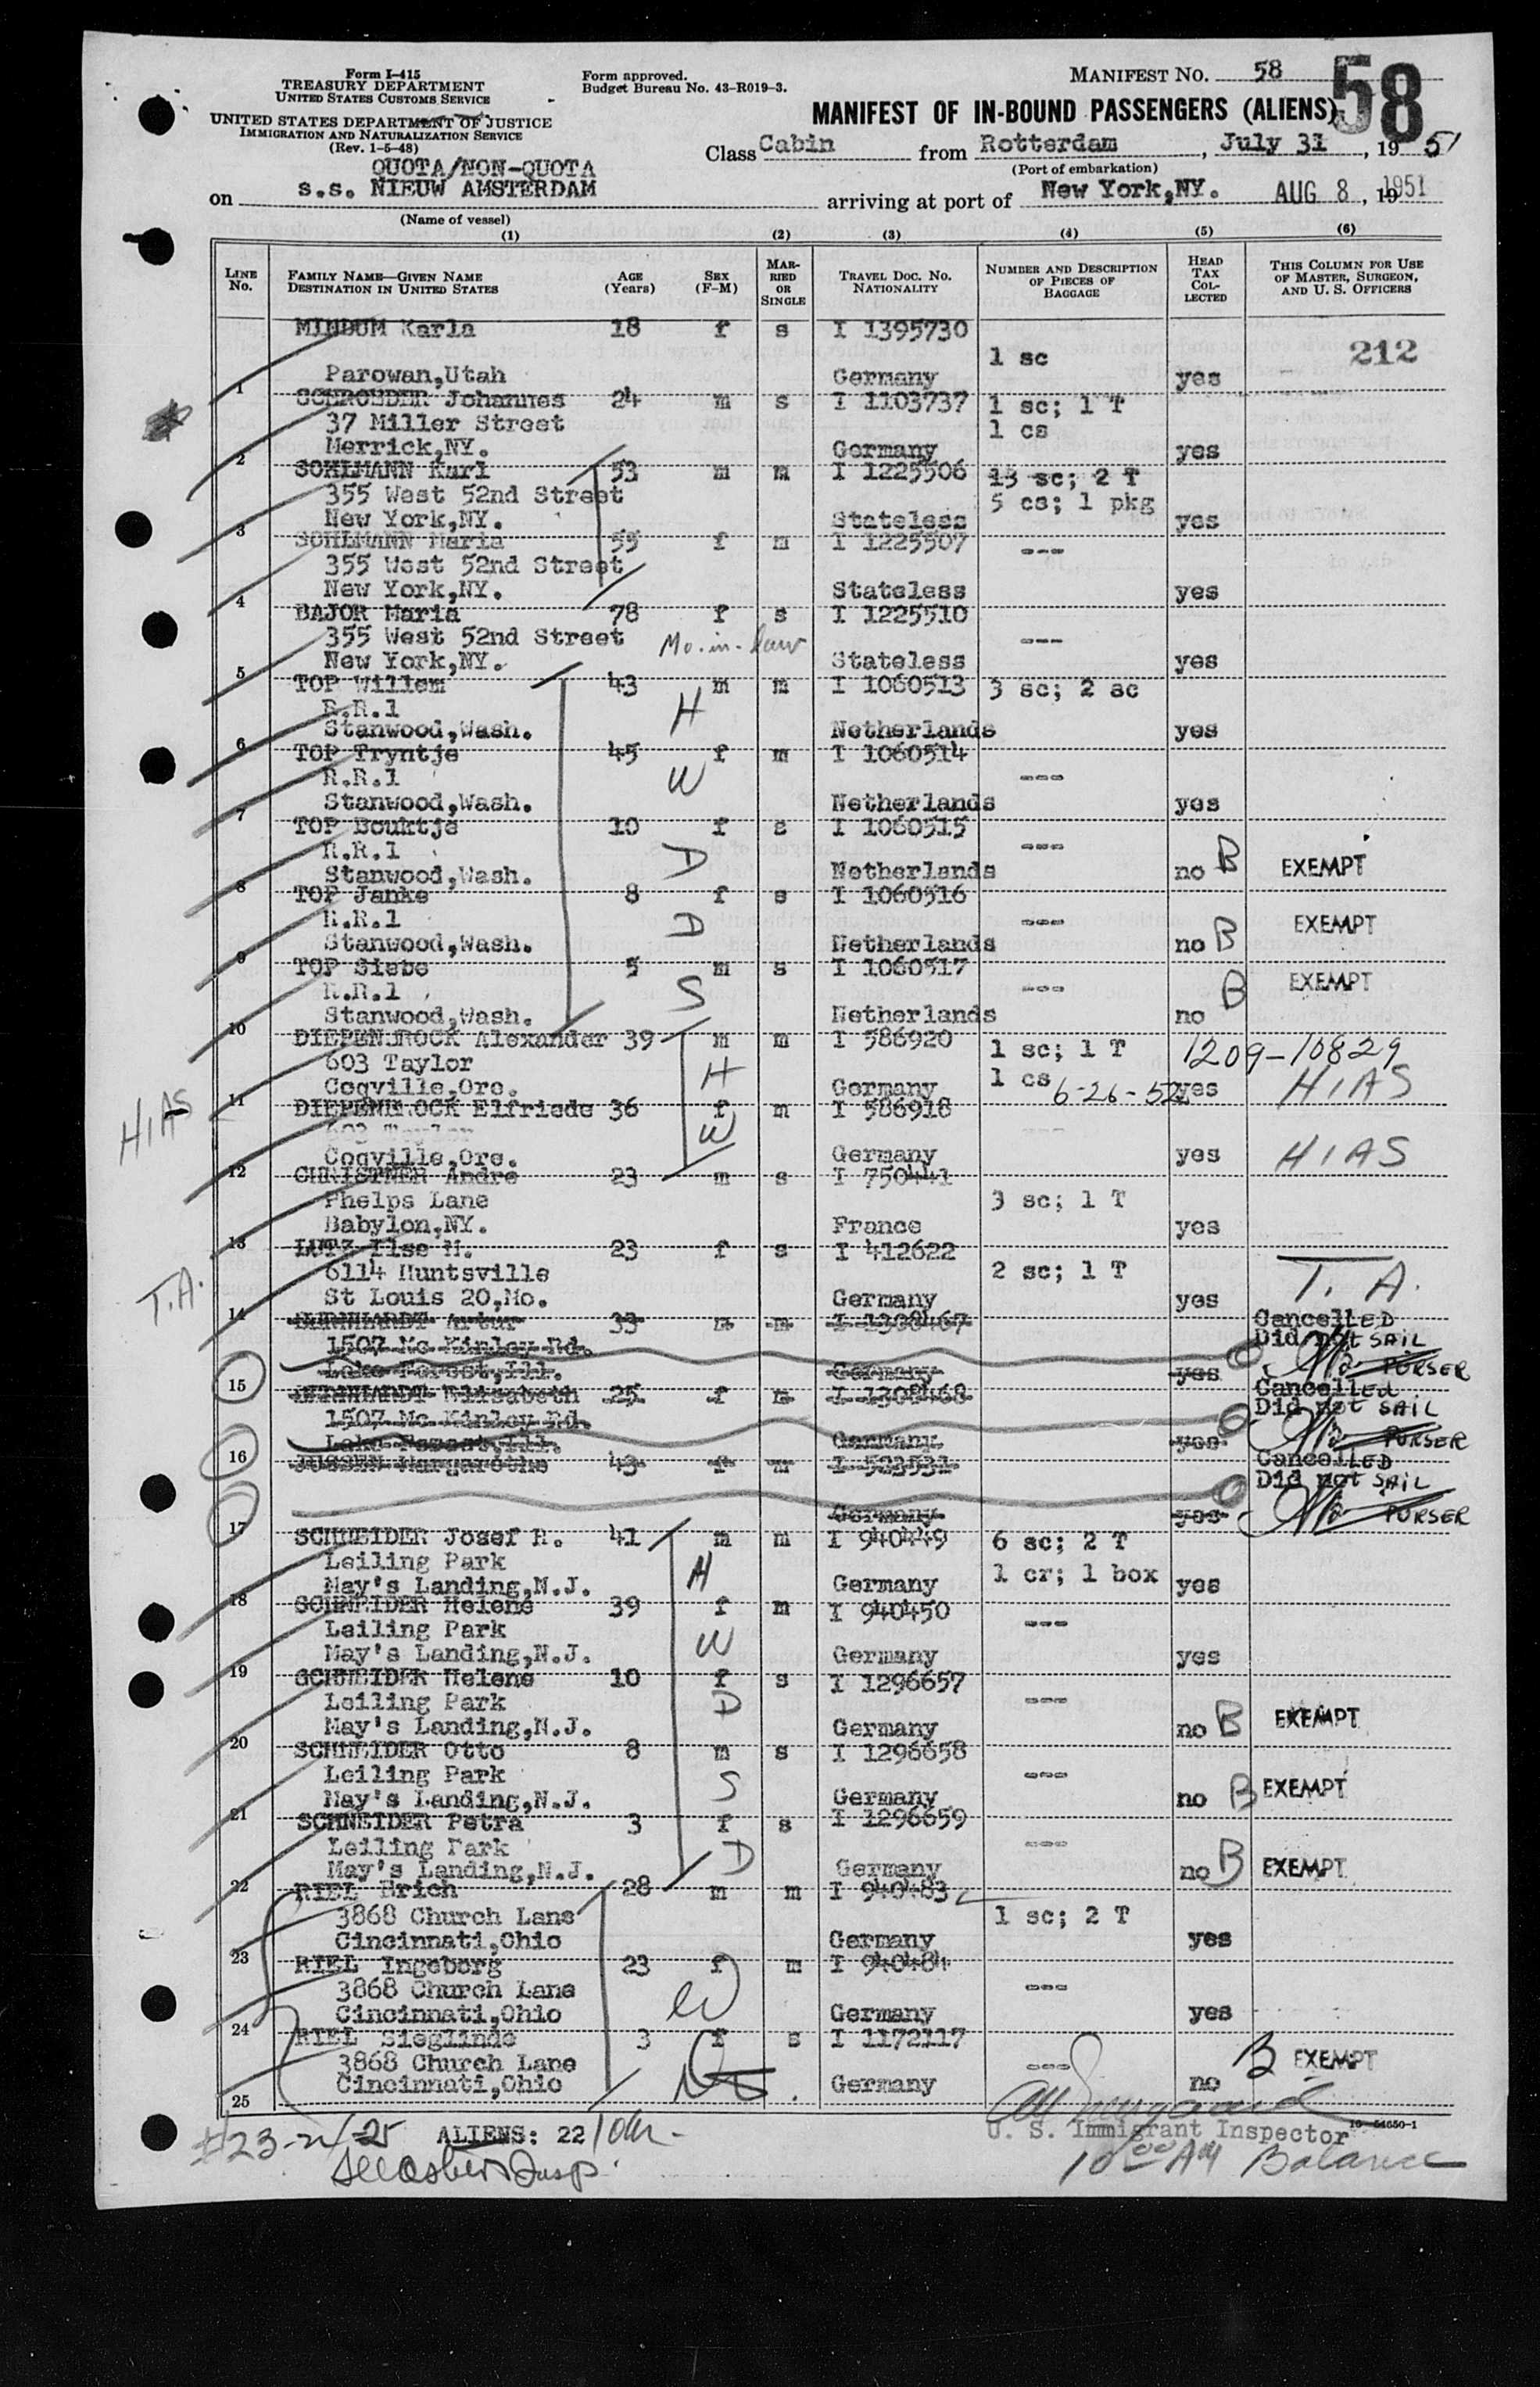 Form I-415
TREASURY DEPARTMENT
UNITED STATES CUSTOMS SERVICE
UNITED STATES DEPARTMENT OF JUSTICE
IMMIGRATION AND NATURALIZATION SERVICE
(Rev. 1-5-48)
Form approved.
Budget Bureau No. 43-R019-3.
MANIFEST NO. 58
58
MANIFEST OF IN-BOUND PASSENGERS (ALIENS)
Class Cabin from Rotterdam, July 31, 1951
(Port of embarkation)
QUOTA/NON-QUOTA
on s.s. NIEUW AMSTERDAM arriving at port of New York,NY. AUG 8, 19 1951
(Name of vessel)
(1) (2) (3) (4) (5) (6)
LINE No. FAMILY NAME—GIVEN NAME DESTINATION IN UNITED STATES AGE (Years) SEX (F-M) MARRIED OR SINGLE TRAVEL DOC. NO. NATIONALITY NUMBER AND DESCRIPTION OF PIECES OF BAGGAGE HEAD TAX COLLECTED THIS COLUMN FOR USE OF MASTER, SURGEON, AND U. S. OFFICERS
MINDUM Karla 18 f s I 1395730
1 sc 212
1 Parowan,Utah Germany yes
SCHROEDER Johannes 24 m s I 1103737 1 sc; 1 T
37 Miller Street 1 cs
2 Merrick,NY. Germany yes
SOHLMANN Karl 53 m m I 1225506 13 sc; 2 T
355 West 52nd Street 5 cs; 1 pkg
3 New York,NY. Stateless yes
SOHLMANN Maria 55 f m I 1225507 ---
355 West 52nd Street
4 New York,NY. Stateless yes
BAJOR Maria 78 f s I 1225510
355 West 52nd Street Mo.-in-law ---
5 New York,NY. Stateless yes
TOP Willem 43 m m I 1060513 3 sc; 2 sc
R.R.1 H
6 Stanwood,Wash. Netherlands yes
TOP Tryntje 45 f m I 1060514
R.R.1 W ---
7 Stanwood,Wash. Netherlands yes
TOP Bouktje 10 f s I 1060515
R.R.1 D ---
8 Stanwood,Wash. Netherlands no B EXEMPT
TOP Janke 8 f s I 1060516
R.R.1 D ---
9 Stanwood,Wash. Netherlands no B EXEMPT
TOP Siebe 5 m s I 1060517
R.R.1 S ---
10 Stanwood,Wash. Netherlands no B EXEMPT
DIEPENBROCK Alexander 39 m m I 586920 1 sc; 1 T 1209-10829
603 Taylor H 1 cs
11 Coqville,Ore. Germany 6-26-52 yes HIAS
HIAS
DIEPENBROCK Elfriede 36 f m I 586918
603 Taylor W ---
12 Coqville,Ore. Germany yes HIAS
CHRISTNER Andre 23 m s I 750441
Phelps Lane 3 sc; 1 T
13 Babylon,NY. France yes
LUTZ Ilse M. 23 f s I 412622
6114 Huntsville 2 sc; 1 T
14 St Louis 20,Mo. Germany yes T.A.
T.A.
BERNHARDT Artur 33 m m I 1308467 Cancelled
1507 Mc Kinley Rd. Did not SAIL
15 Lake Forest,Ill. Germany yes PURSER
BERNHARDT Elisabeth 25 f m I 1308468 Cancelled
1507 Mc Kinley Rd. Did not SAIL
16 Lake Forest,Ill. Germany yes PURSER
Margarethe 43 f m I 523531 Cancelled
Did not SAIL
17 Germany yes PURSER
SCHNEIDER Josef R. 41 m m I 940449 6 sc; 2 T
Leiling Park H 1 cr; 1 box
18 May's Landing,N.J. Germany yes
SCHNEIDER Helene 39 f m I 940450
Leiling Park W ---
19 May's Landing,N.J. Germany yes
SCHNEIDER Helene 10 f s I 1296657
Leiling Park D ---
20 May's Landing,N.J. Germany no B EXEMPT
SCHNEIDER Otto 8 m s I 1296658
Leiling Park S ---
21 May's Landing,N.J. Germany no B EXEMPT
SCHNEIDER Petra 3 f s I 1296659
Leiling Park D ---
22 May's Landing,N.J. Germany no B EXEMPT
RIEL Erich 28 m m I 940483
3868 Church Lane 1 sc; 2 T
23 Cincinnati,Ohio Germany yes
RIEL Ingeborg 23 f m I 940484
3868 Church Lane W ---
24 Cincinnati,Ohio Germany yes
RIEL Sieglinde 3 f s I 1172117
3868 Church Lane --- B EXEMPT
25 Cincinnati,Ohio Germany no
#23-24-25 ALIENS: 22
U. S. Immigrant Inspector 16—54650-1
10 00 AM Balance